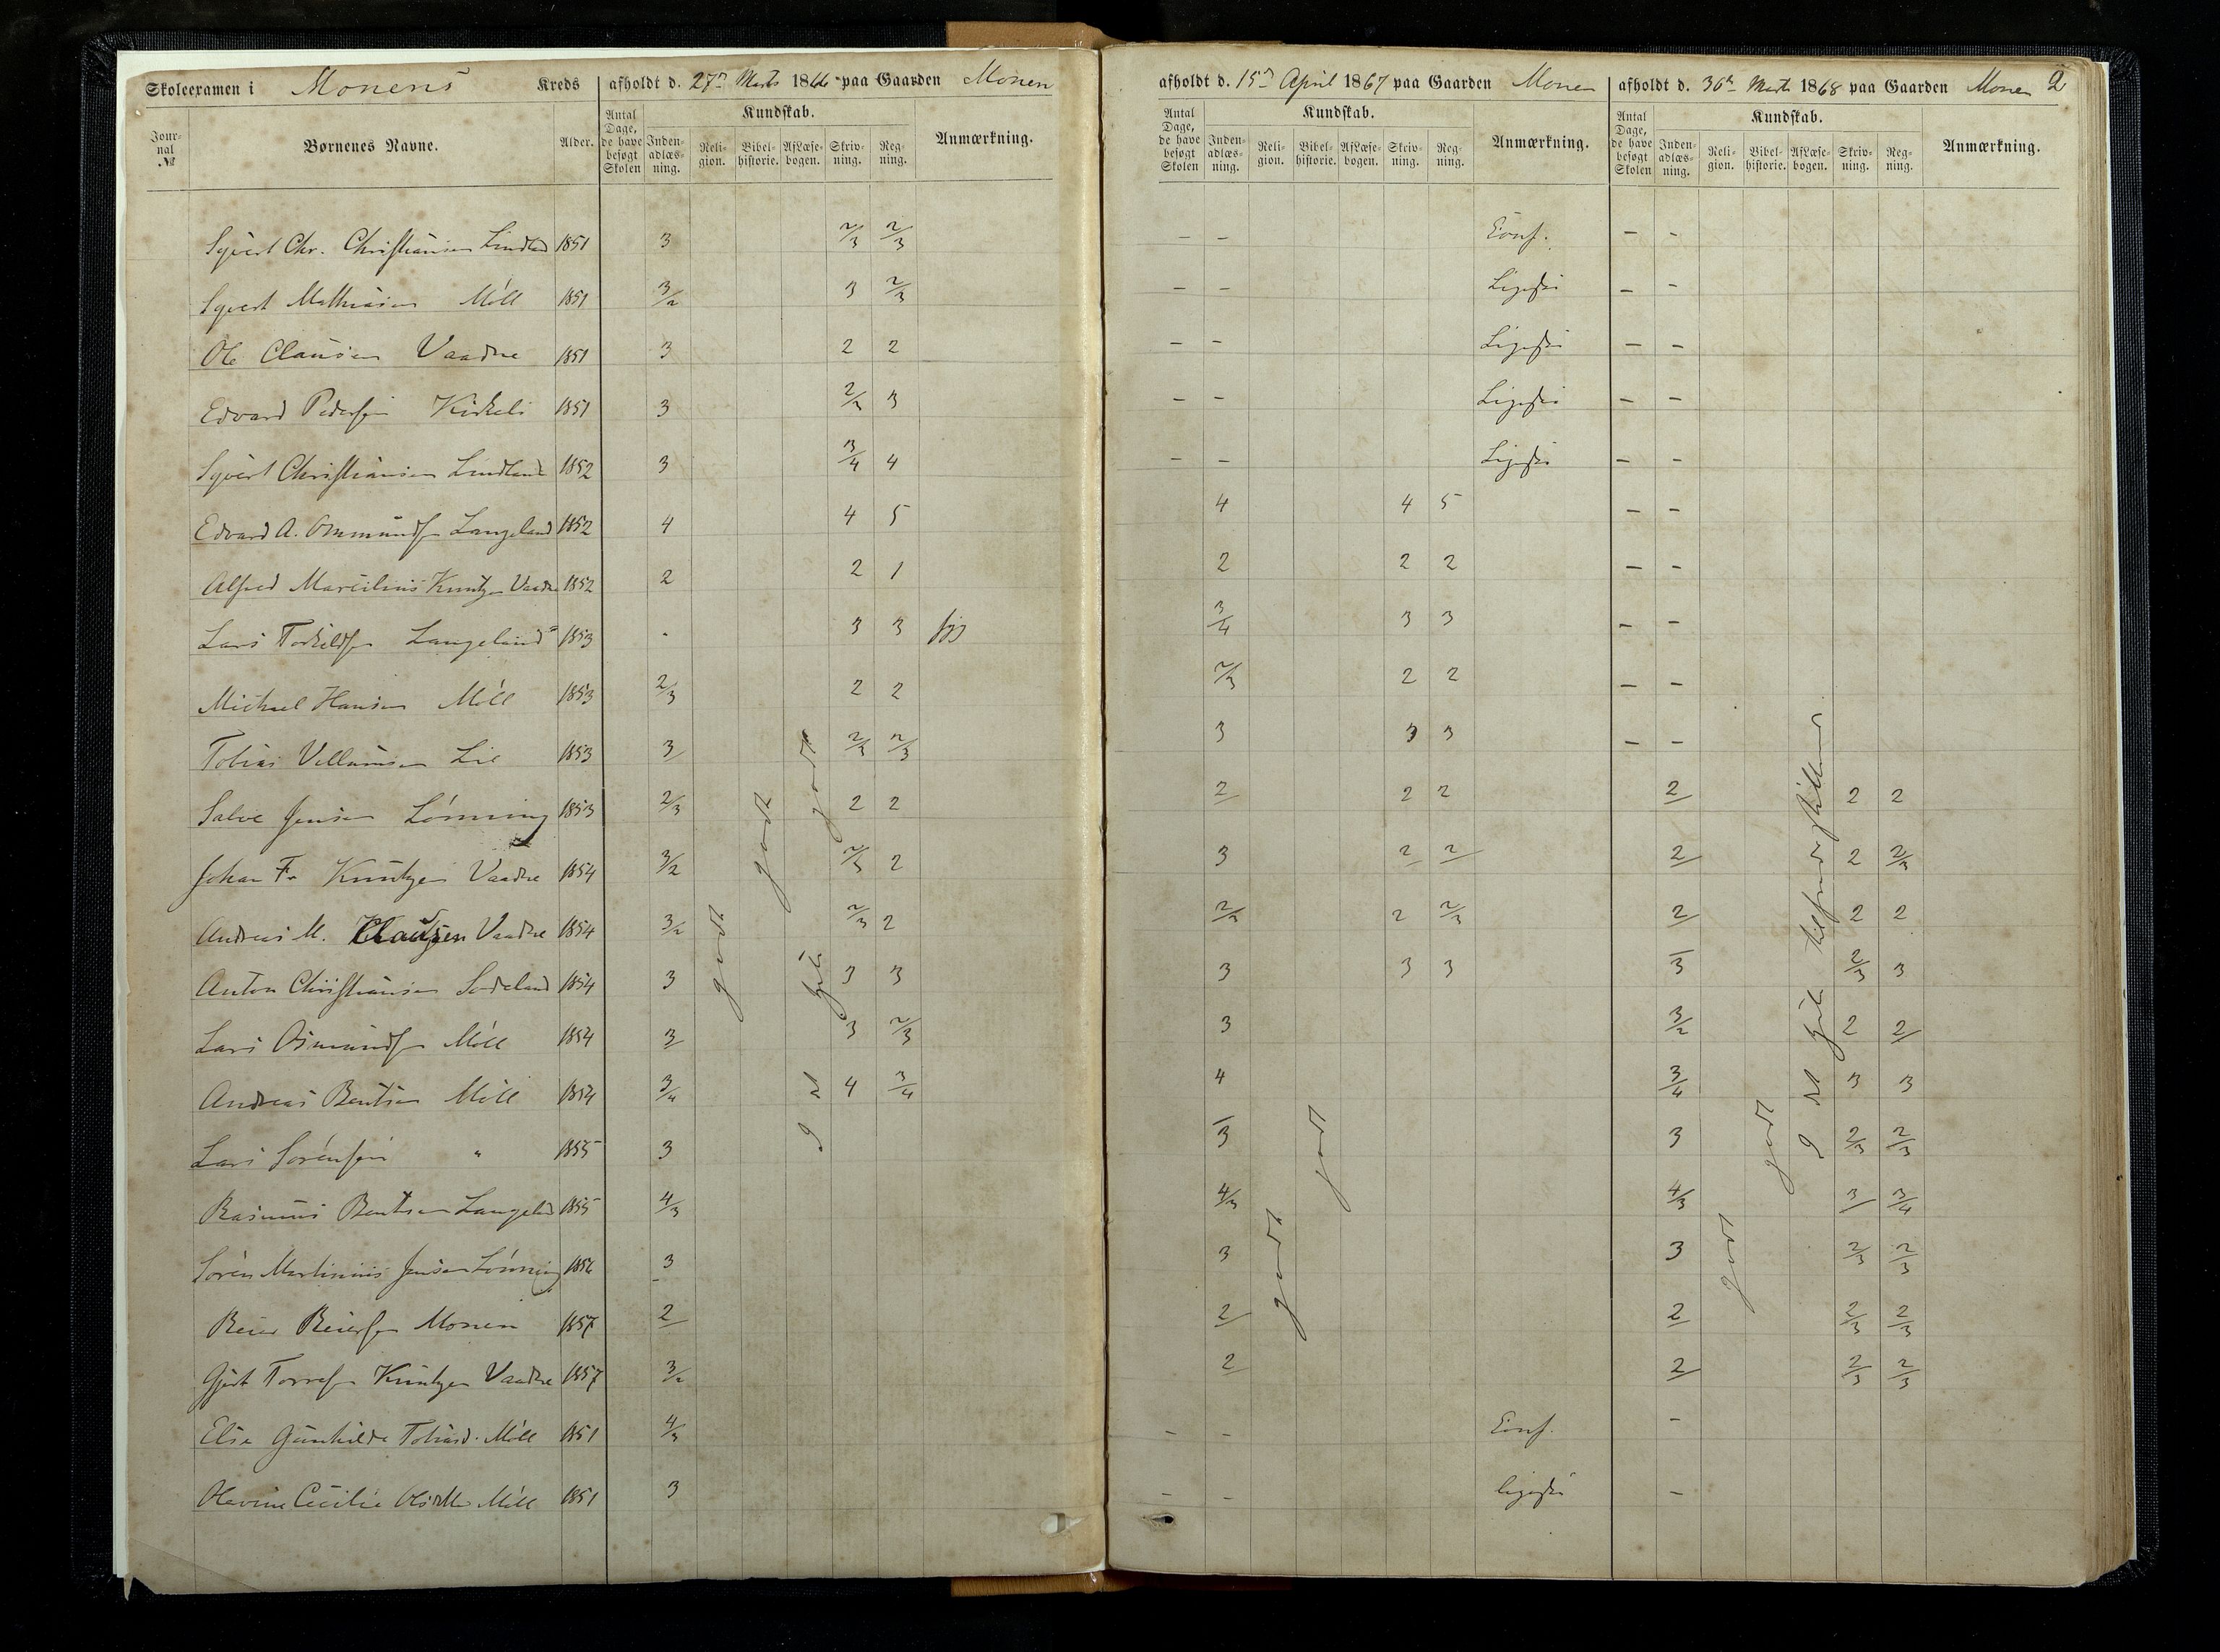 Skoleexamen i Monens Kreds afholdt d. 27de Marts 1866 paa Gaarden Monen
afholdt d. 15de April 1867 paa Gaarden Monen
afholdt d. 30te Marts 1868 paa Gaarden Monen 2
Jour-nal № Børnenes Navne. Alder. Antal Dage, de have besøgt Skolen Kundskab. Inden-adlæs-ning. Reli-gion. Bibel-historie. Af Læse-bogen. Skriv-ning. Reg-ning. Anmærkning.
Antal Dage, de have besøgt Skolen Kundskab. Inden-adlæs-ning. Reli-gion. Bibel-historie. Af Læse-bogen. Skriv-ning. Reg-ning. Anmærkning.
Antal Dage, de have besøgt Skolen Kundskab. Inden-adlæs-ning. Reli-gion. Bibel-historie. Af Læse-bogen. Skriv-ning. Reg-ning. Anmærkning.
Syvert Chr. Christiansen Lindland 1851 3 2/3 2/3 – – Conf. – –
Syvert Mathiasen Möll 1851 3/2 3 2/3 – – Ligesaa – –
Ole Clausen Vaadne 1851 3 2 2 – – Ligesaa – –
Edvard Pedersen 1851 3 2/3 3 – – Ligesaa – –
Syvert Christiansen Lindland 1852 3 3/4 4 – – Ligesaa – –
Edvard A. Osmundsen Langeland 1852 4 4 5 4 4 5 – –
Alfred Marcilius Knutzen Vaadne 1852 2 2 1 2 2 2 – –
Lars Torkildsen Langeland 1853 3 3 syg 3/4 3 3 – –
Michael Hansen Möll 1853 2/3 2 2 2/3 2 2 – –
Tobias Villumsen Lie 1853 3 2/3 2/3 3 3 3 – –
Salve Jensen Lönning 1853 2/3 2 2 2 2 2 2 2 2
Johan Fr. Knutzen Vaadne 1854 3/2 2/3 2 3 2 2 2 2 2/3
Andreas M. Clausen Vaadne 1854 3/2 2/3 2 2/3 2 2/3 2 2 2
Anton Christiansen 1854 3 3 3 3 3 3 3 2/3 3
Lars Osmundsen Möll 1854 3 3 2/3 3 3/2 2 2
Andreas Bentsen Möll 1854 3/4 4 3/4 4 3/4 3 3
Lars Sörensen " 1855 3 3 3 2/3 2/3
Rasmus Bentsen Langeland 1855 4/3 4/3 4/3 3 3/4
Sören Martinius Jensen Lönning 1856 3 3 3 2/3 2/3
Beier Beiersen Monen 1857 2 2 2 2/3 2/3
Gjert Torresen Knutzen Vaadne 1857 3/2 2 2 2/3 2/3
Elie Gunhilde Tobiasd. Möll 1851 4/3 – – Conf. –
Olevine Cecilie Olsdtr Möll 1851 3 – – ligesaa –
godt
godt
I det Hele godt
godt
godt
godt
godt
I det Hele tilfredsstillende